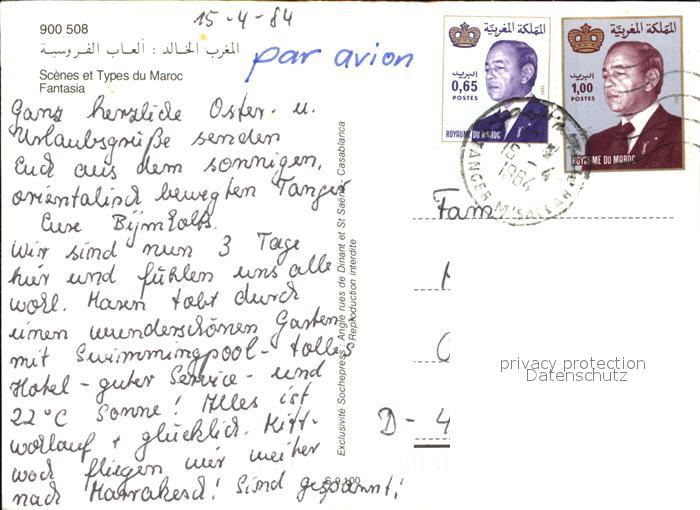 15-4-84
900 508
المغرب الخالد : ألعاب الفروسية
par avion
Scènes et Types du Maroc
Fantasia
Ganz herzliche Oster- u.
Urlaubsgrüße senden
Euch aus dem sonnigen,
orientalisch bewegten Tanger
Eure
Wir sind nun 3 Tage
hier und fühlen uns alle
wohl. Maren tobt durch
einen wunderschönen Garten
mit Swimmingpool - tolles
Hotel - guter Service - und
22°C Sonne! Alles ist
wohlauf + glücklich. Mitt-
woch fliegen wir weiter
nach Marrakesch! Sind gespannt!
Exclusivité Sochepress: Angle rues de Dinant et St Saëns, Casablanca
Reproduction interdite
المملكة المغربية
البريد
0,65
POSTES
ROYAUME DU MAROC
المملكة المغربية
البريد
1,00
POSTES
ROYAUME DU MAROC
TANGER M'SALLAH
1984
Fam
D - 4
privacy protection
Datenschutz